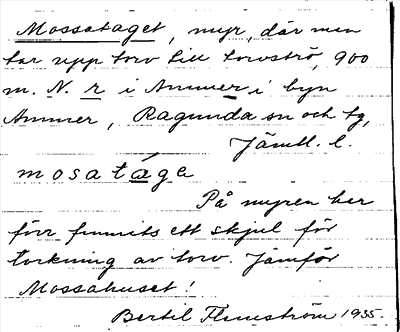 Mossataget, myr, där man
tar upp torv till torvströ, 900
m. N. r i Ammer i byn
Ammer, Ragunda sn och tg,
Jämtl. l.
mosatága
På myren har
förr funnits ett skjul för
torkning av torv. Jämför
Mossahuset!
Bertil Flemström 1935.